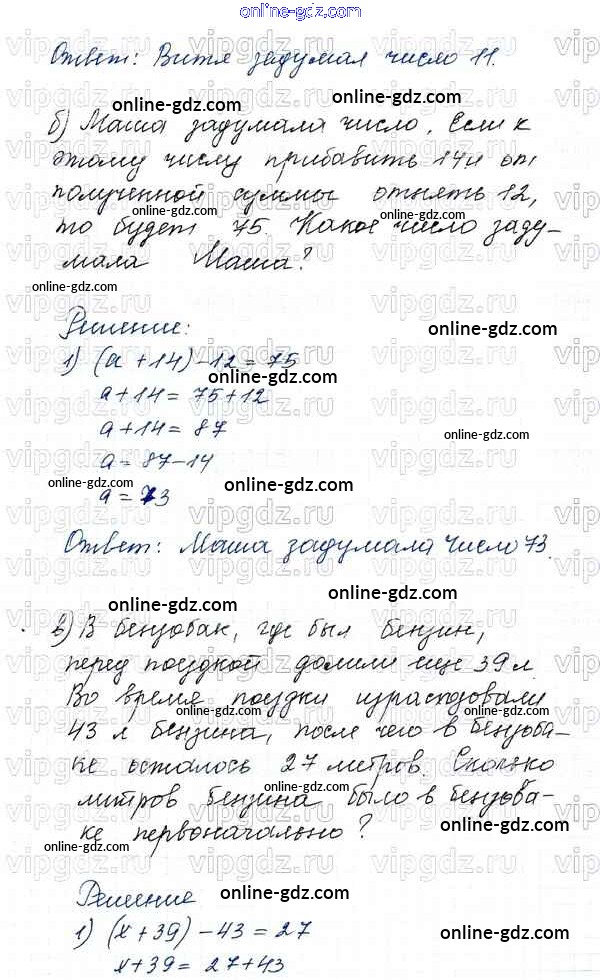 online-gdz.com
Ответ: Витя задумал число 11.
online-gdz.com
б) Маша задумала число. Если к
этому числу прибавить 14 и от
полученной суммы отнять 12,
то будет 75. Какое число заду-
мала Маша?
online-gdz.com
Решение:
online-gdz.com
1) (a + 14) - 12 = 75
online-gdz.com
a + 14 = 75 + 12
a + 14 = 87
online-gdz.com
a = 87 - 14
online-gdz.com
a = 73
Ответ: Маша задумала число 73.
online-gdz.com
в) В бензобак, где был бензин,
перед поездкой долили еще 39 л.
Во время поездки израсходовали
43 л бензина, после чего в бензоба-
ке осталось 27 метров. Сколько
митров бензина было в бензоба-
ке первоначально?
online-gdz.com
Решение
online-gdz.com
1) (x + 39) - 43 = 27
x + 39 = 27 + 43
online-gdz.com